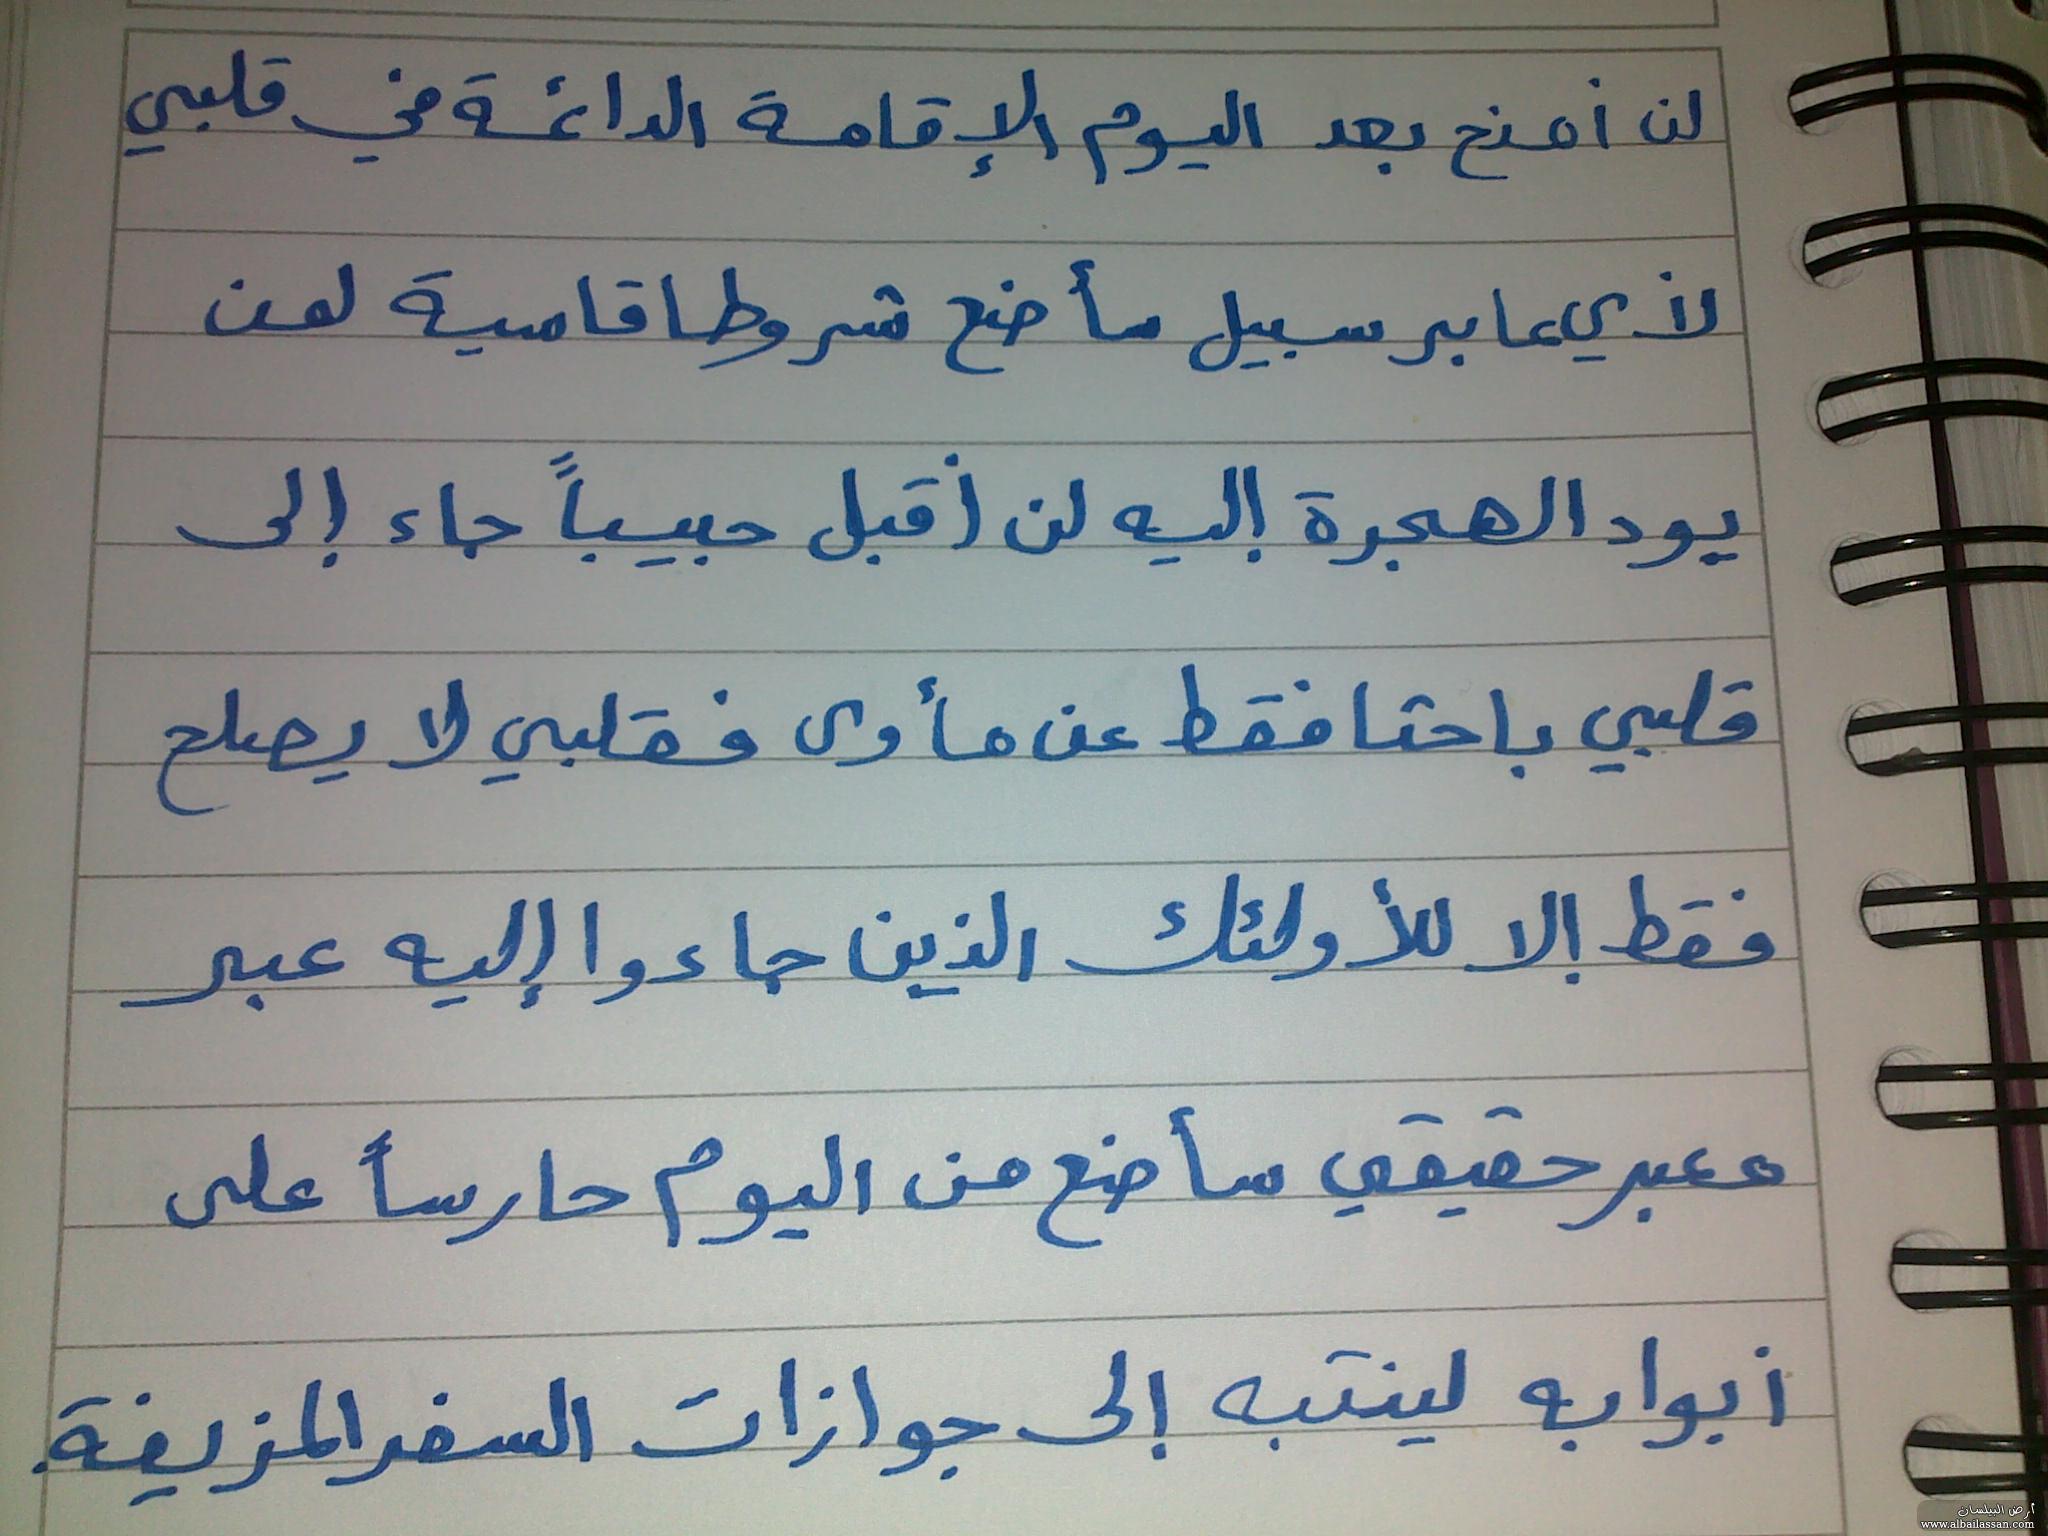 لن أمنح بعد اليوم الإقامة الدائمة في قلبي
لأي عابر سبيل سأضع شروطا قاسية لمن
يود الهجرة إليه لن أقبل حبيباً جاء إلى
قلبي باحثا فقط عن مأوى فقلبي لا يصلح
فقط إلا للأولئك الذين جاءوا إليه عبر
ممبر حقيقي سأضع من اليوم حارساً على
أبوابه لينتبه إلى جوازات السفر المزيفة.
أرض البيلسان
www.albailassan.com